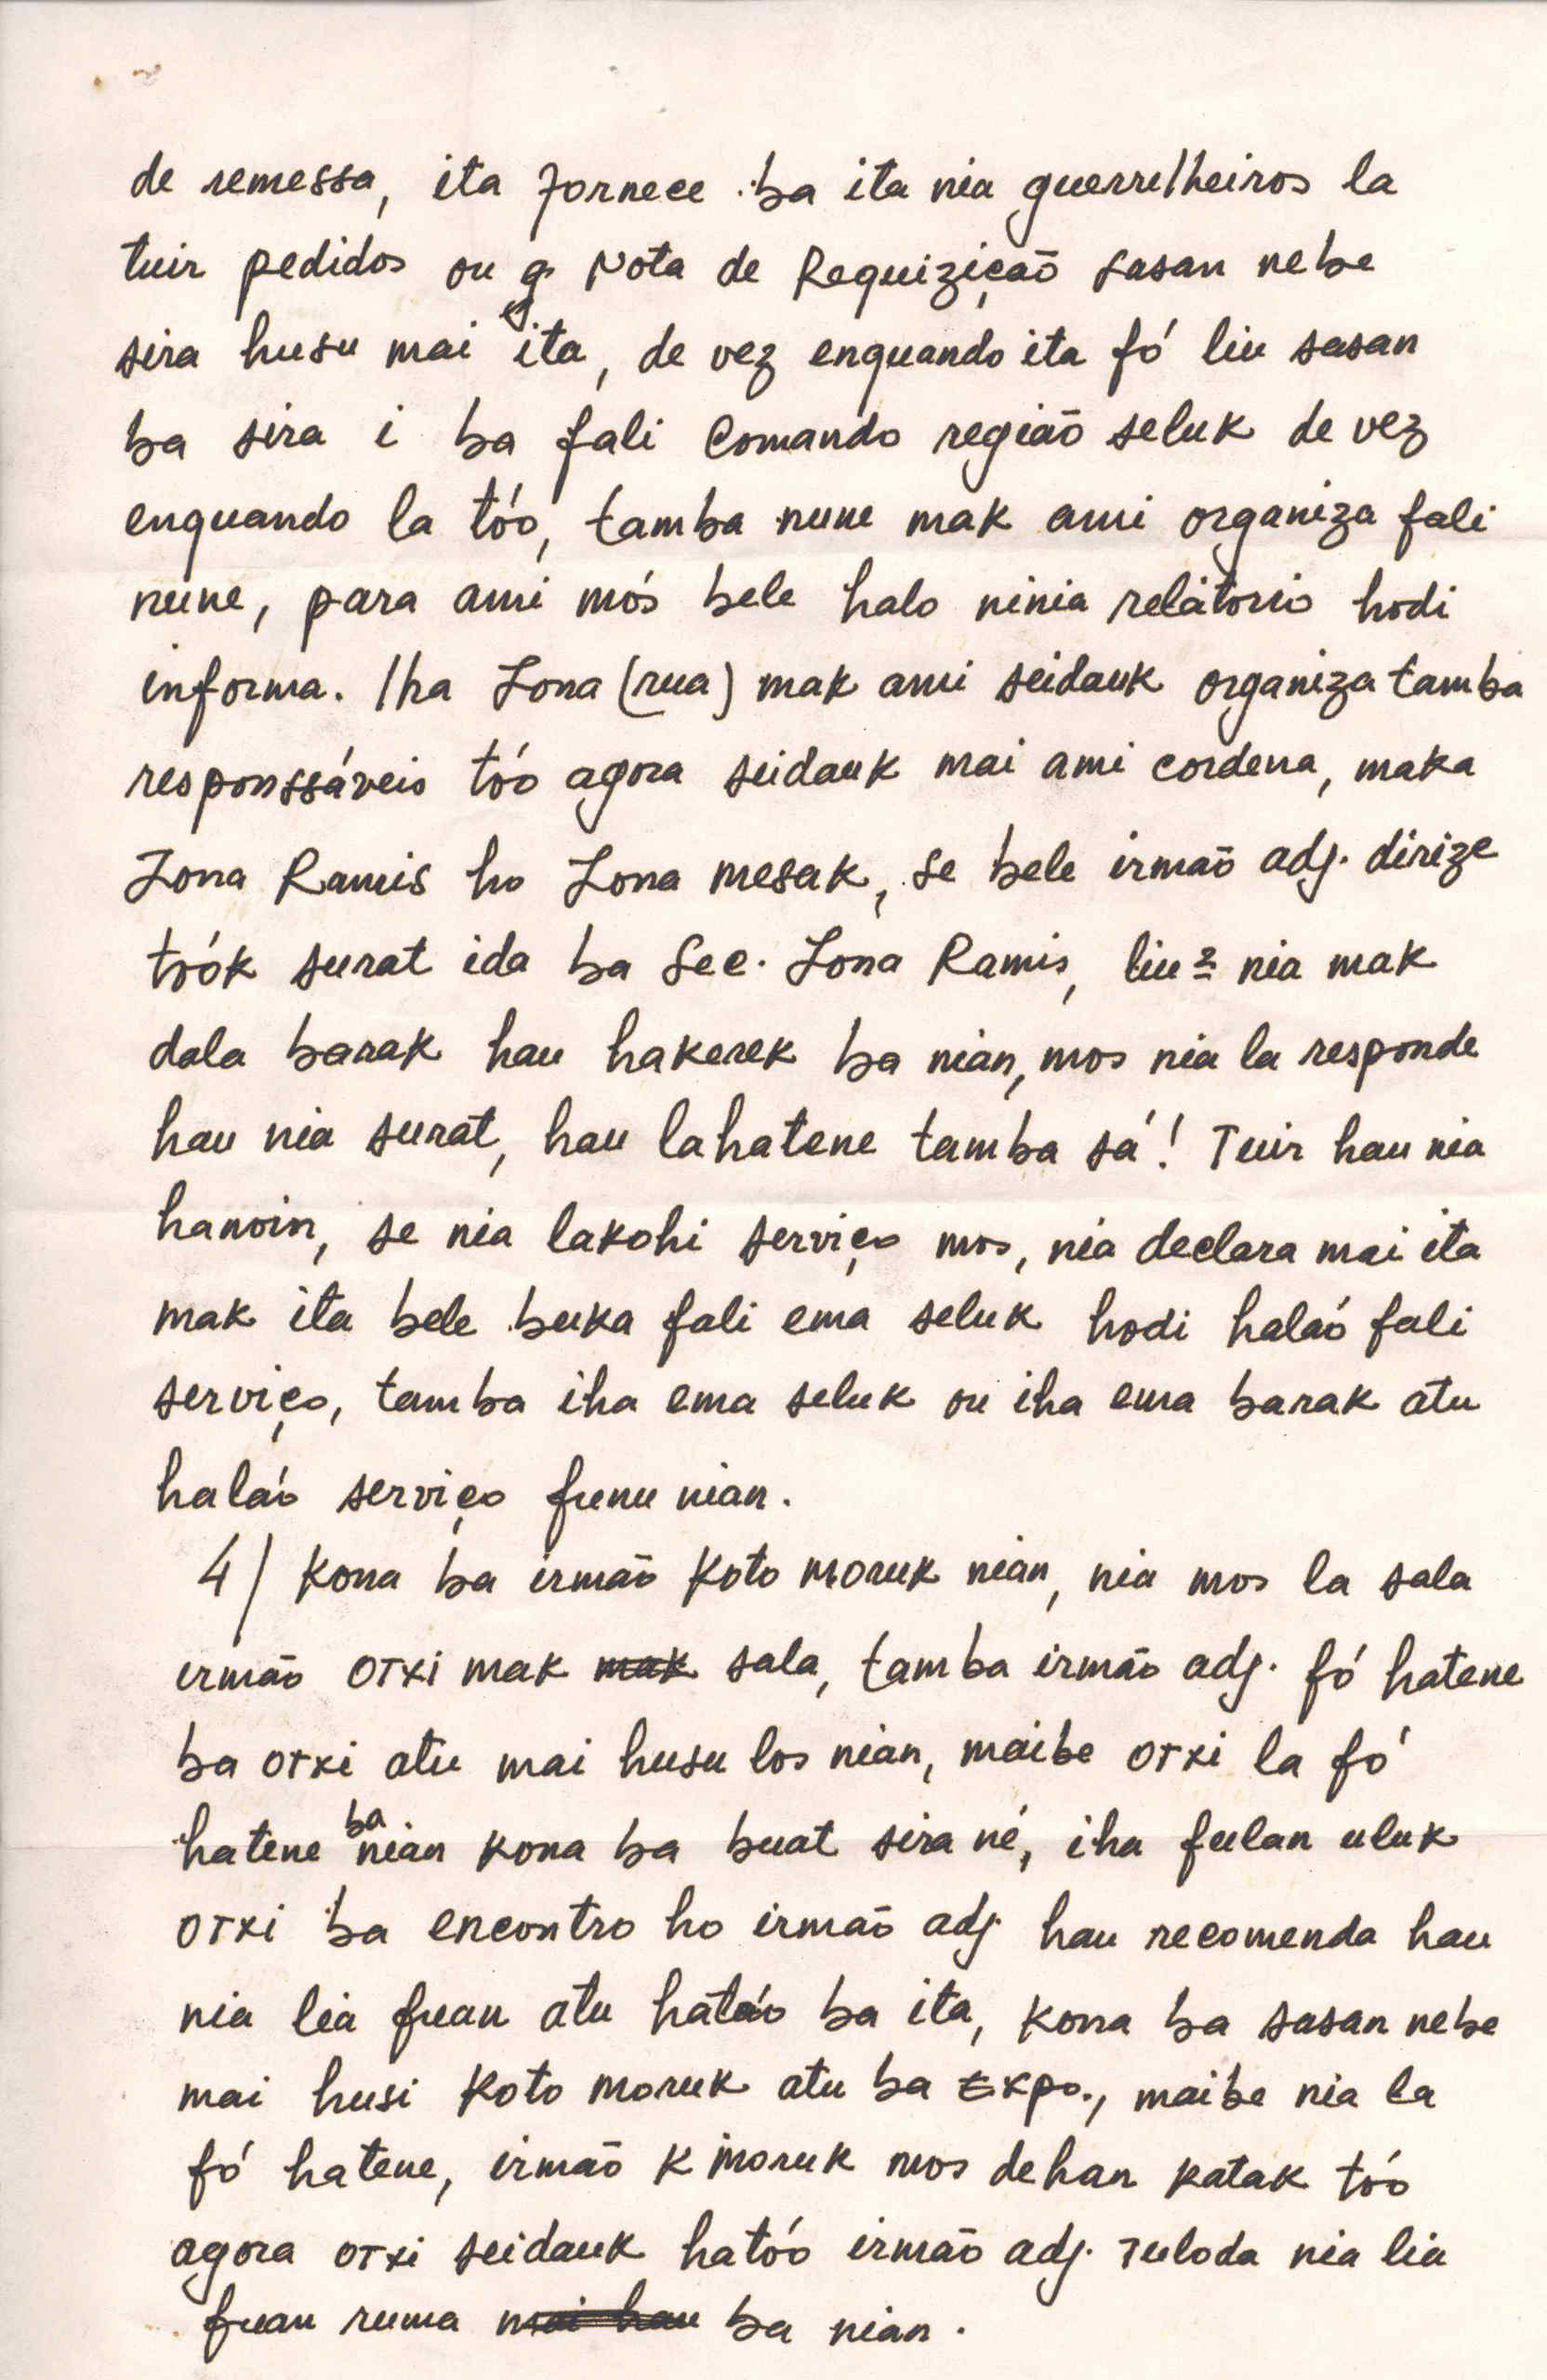 de remessa, ita fornece ba ita nia guerrulheiros la
tuir pedidos ou g Nota de Requizição sasan nebe
sira husu mai ita, de vez enquando ita fó liu sasan
ba sira i ba fali Comando região seluk de vez
enquando la tóo, tamba nune mak ami organiza fali
nune, para ami mós bele halo ninia relátorio hodi
informa. Iha Zona (rua) mak ami seidauk organiza tamba
responssáveis tóo agora seidauk mai ami cordena, maka
Zona Ramis ho Zona mesak, se bele irmão adj. dirize
tóok surat ida ba Sec. Zona Ramis, liu2 nia mak
dala barak hau hakerek ba nian, mos nia la responde
hau nia surat, hau lahatene tamba sá! Tuir hau nia
hanoin, se nia lakohi serviço mos, nia declara mai ita
mak ita bele buka fali ema seluk hodi haláo fali
serviço, tamba iha ema seluk ou iha ema barak atu
haláo serviço funu nian.
4/ Kona ba irmão Koto moruk nian, nia mos la sala
irmão OTXI mak mak sala, tamba irmão adj. fó hatene
ba OTXI atu mai husu los nian, maibe OTXI la fó
hatene ba nian kona ba buat sira né, iha fulan uluk
OTXI ba encontro ho irmão adj. hau recomenda hau
nia lia fuan atu hatóo ba ita, kona ba sasan nebe
mai husi Koto moruk atu ba Expo., maibe nia la
fó hatene, irmão K moruk mos dehan katak tóo
agora OTXI seidauk hatóo irmão adj. Tuloda nia lia
fuan ruma mai hau ba nian.